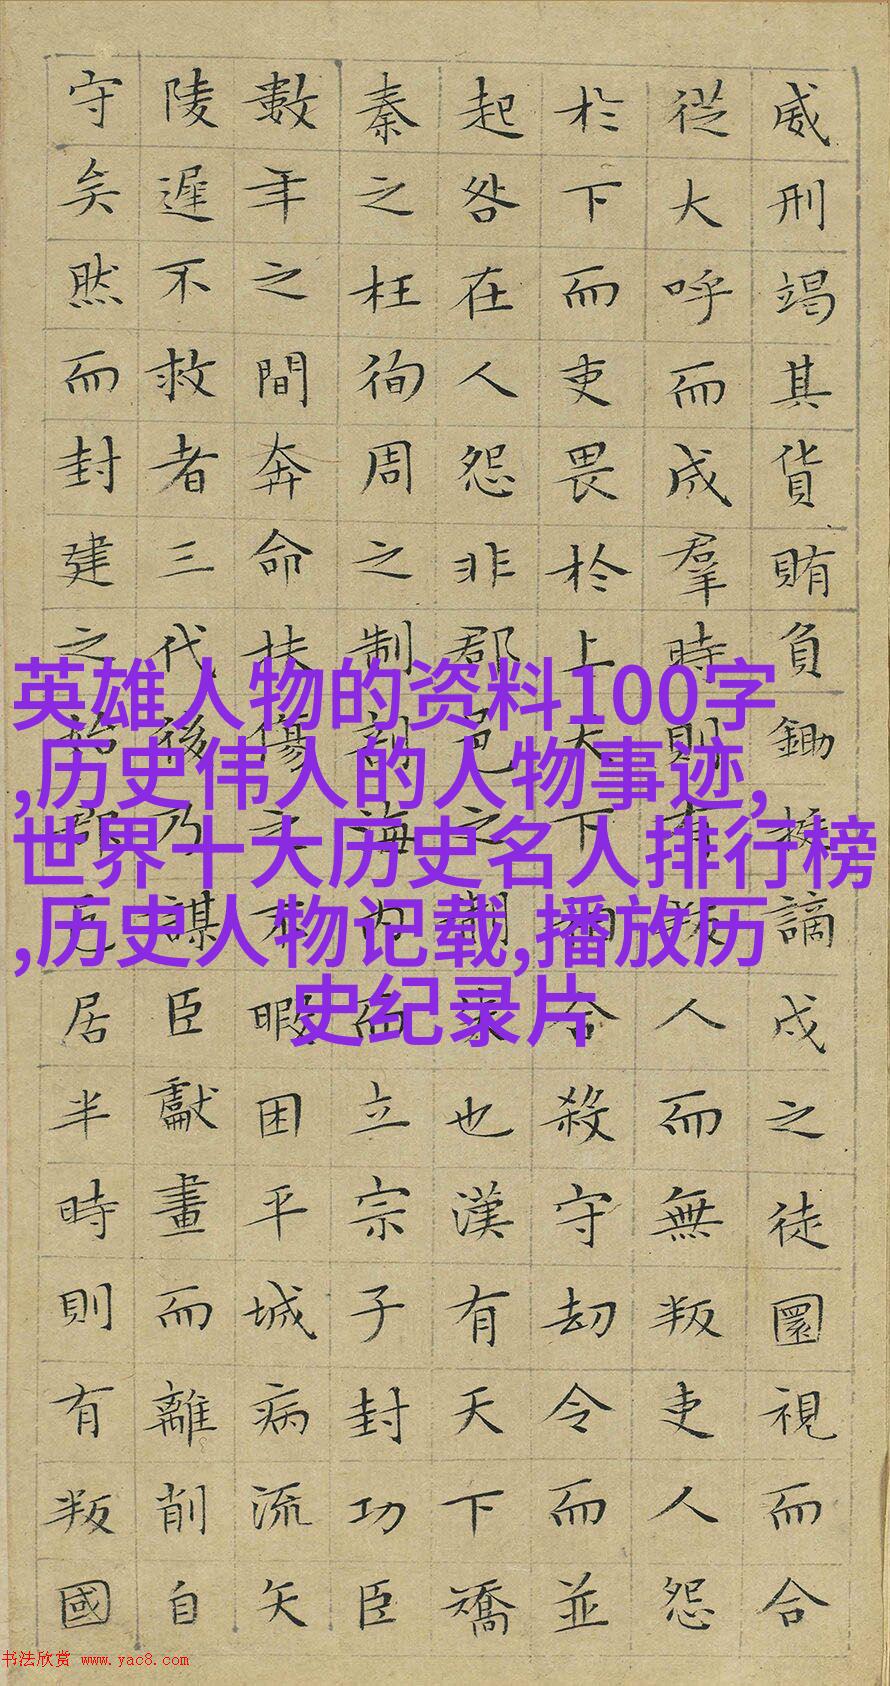 威刑竭其貨賄負鋤梃謫戍之徒圜視而合
從大呼而成羣時則有叛人而無叛吏人怨
於下而吏畏於上天下相合殺守劫令而並
起咎在人怨非郡邑之制失也漢有天下矯
秦之枉徇周之制剖海內而立宗子封功臣
數年之間奔命扶傷之不暇困平城病流矢
陵遲不救者三代後乃謀臣獻畫而離削自
守矣然而封建之始郡邑居半時則有叛國
英雄人物的资料100字
,历史伟人的人物事迹,
世界十大历史名人排行榜
,历史人物记载,播放历
史纪录片
书法欣赏 www.yac8.com